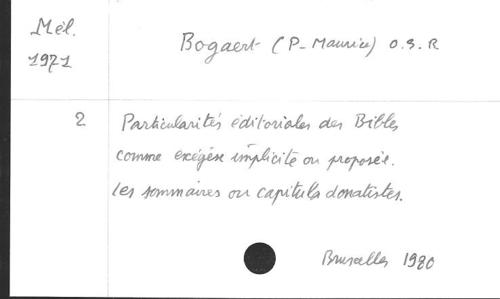 Mél.
1971
Bogaert (P-Maurice) O.S.R
2
Particularités éditoriales des Bibles
comme exégèse implicite ou proposée.
les sommaires ou capitula donatistes.
Bruxelles 1980